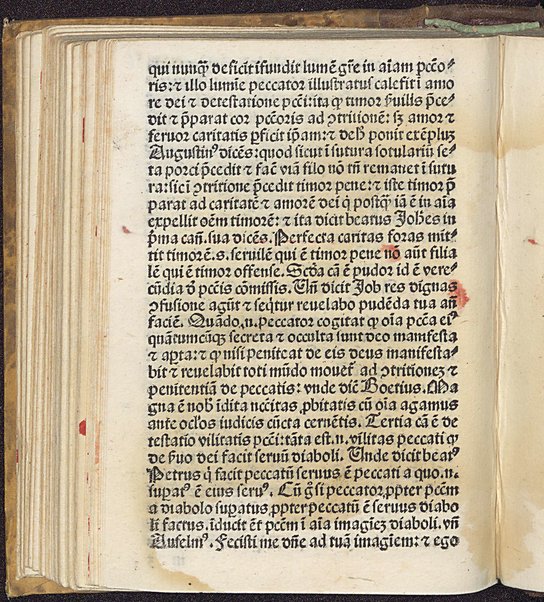 qui nunq̄ deficit īfundit lumē gr̄e in aīam pctō⸗
ris: ⁊ illo lumīe peccator illustratus calefit ī amo
re dei ⁊ detestatione pcc̄i: ita ꝙ timor ẜuilis p̄ce⸗
dit ⁊ p̄parat cor pcc̄oris ad ↄtritionē: sꝫ amor ⁊
feruor caritatis ꝑficit ip̄am: ⁊ de hͦ ponit exēpluꝫ
Augustinꝰ dicēs: quod sicut ī sutura sotulariū se⸗
ta porci p̄cedit ⁊ fac̄ viā filo nō tn̄ remanet ī sutu
ra: sic ī ↄtritione p̄cedit timor pene: ⁊ iste timor p̄
parat ad caritatē ⁊ amorē dei q̇ postꝙ̄ iā ē in aīa
expellit oēm timorē: ⁊ ita dicit beatus Joh̄es in
p̄ma can̄. sua dicēs. Perfecta caritas foras mit⸗
tit timorē .s. seruilē qui ē timor pene nō aūt filia
lē qui ē timor offense. Scd̄a cā ē pudor id ē vere⸗
cūdia ꝺ̄ pcc̄is cōmissis. Un̄ dicit Job res dignas
ↄfusione agūt ⁊ seq̄tur reuelabo pudēda tua an̄
faciē. Quādo .n. peccator cogitat ꝙ oīa pcc̄a eiꝰ
quātumcūqꝫ secreta ⁊ occulta sunt deo manifesta
⁊ aꝑta: ⁊ ꝙ nisi peniteat de eis deus manifesta⸗
bit ⁊ reuelabit toti mūdo mouet̄ ad ↄtritionez ⁊
penitentiā de peccatis: vnde dic̄ Boetius. Ma
gna ē nob̄ īdita nc̄citas ꝓbitatis cū oīa agamus
ante ocl̄os iudicis cūcta cernētis. Tertia cā ē de
testatio vilitatis pcc̄i: tāta est .n. vilitas peccati ꝙ
de ẜuo dei facit seruū diaboli. Unde dicit beatꝰ
Petrus q̇ facit peccatū seruus ē peccati a quo .n.
suꝑatꝰ ē eius seruꝰ. Cū g̊ si peccator ꝓpter pcc̄m
a diabolo suꝑatus ꝓpter peccatū ē seruus diabo
li factus. īducit ēt pcc̄m ī aīa imaginez diaboli. vn̄
Anselmꝰ. Fecisti me dn̄e ad tuā imaginem: ⁊ ego